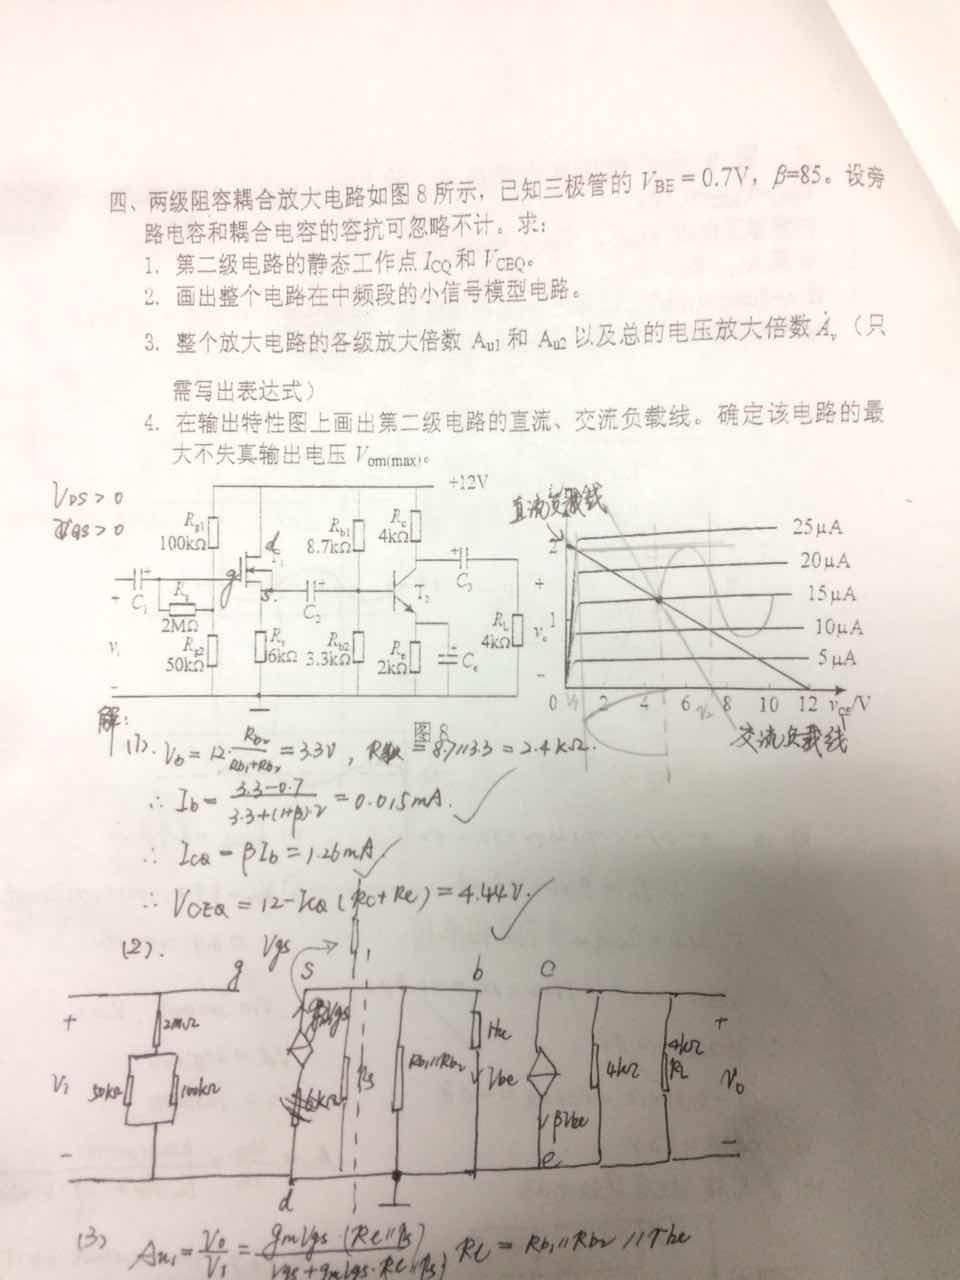 四、两级阻容耦合放大电路如图8所示，已知三极管的 V_BE = 0.7V，β=85。设旁
路电容和耦合电容的容抗可忽略不计。求：
1. 第二级电路的静态工作点 I_CQ 和 V_CEQ。
2. 画出整个电路在中频段的小信号模型电路。
3. 整个放大电路的各级放大倍数 A_u1 和 A_u2 以及总的电压放大倍数 Ȧ_v（只
需写出表达式）
4. 在输出特性图上画出第二级电路的直流、交流负载线。确定该电路的最
大不失真输出电压 V_om(max)。
V_DS > 0
V_GS > 0
+12V
R_g1
100kΩ
d
T_1
g
s
R_b1
8.7kΩ
R_c
4kΩ
C_3
C_1
R_g
2MΩ
C_2
T_2
R_L
4kΩ
v_o
v_i
R_g2
50kΩ
R_s
6kΩ
R_b2
3.3kΩ
R_e
2kΩ
C_e
直流负载线
2
1
25μA
20μA
15μA
10μA
5μA
0 2 4 6 8 10 12 v_CE/V
交流负载线
图8
解:
(1). V_b = 12·R_b2/(R_b1+R_b2) = 3.3V, = 8.7//3.3 = 2.4kΩ.
∴ I_b = (3.3-0.7)/(3.3+(1+β)·2) = 0.015mA.
∴ I_CQ = βI_b = 1.26mA
∴ V_CEQ = 12-I_CQ(R_C+R_e) = 4.44V.
(2).
V_gs
g
s
b
c
+
2MΩ
50kΩ
100kΩ
V_i
−
g_mV_gs
6kΩ
R_s
R_b1//R_b2
V_be
βV_be
4kΩ
4kΩ
R_L
+
V_o
−
d
e
(3) A_u1 = V_o/V_i = g_mV_gs(R_L//R_s)/(V_gs+g_mV_gs·R_L//R_s) R_L = R_b1//R_b2//r_be